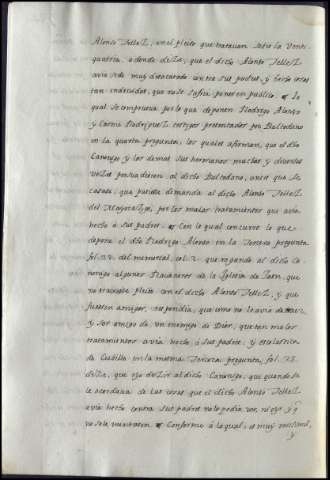 Alonso Tellez, en el pleito que tratauan sobre la Vent
quatria, adonde dezia, que el dicho Alonso Tellez
avia sido muy desacatado contra sus padres, y hecho cosas
tan indevidas, que no se sufria poner en publico. Lo
qual se comprueua por lo que deponen Rodrigo Alonso
y Garcia Rodriguez testigos presentados por Baltodano
en la quarta pregunta, los quales afirman, que el dicho
Camargo y los demas sus hermanos muchas y diversas
vezes persuadieron al dicho Baltodano, antes que se
casase, que pusiese demanda al dicho Alonso Tellez
del Mayorazgo, por los malos tratamientos que avia
hecho a sus padres. Con lo qual concurre lo que
depone el dicho Rodrigo Alonso en la tercera pregunta
fol. del memorial, col. 2. que rogando al dicho Ca
margo algunos Racioneros de la Iglesia de Jaen, que
no traxesse pleito con el dicho Alonso Tellez, y que
fuessen amigos, respondia, que como no le avia de
y ser amigo de un enemigo de Dios, que tan malos
tratamientos avia hecho a sus padres; y
de Castillo en la mesma tercera pregunta, fol. 23.
dize, que oyo dezir al dicho Camargo, que quando se
le acordaua de las cosas que el dicho Alonso Tellez
avia hecho contra sus padres no lo podia ver, ni oyr
no se la Conforme a lo qual, es muy
y